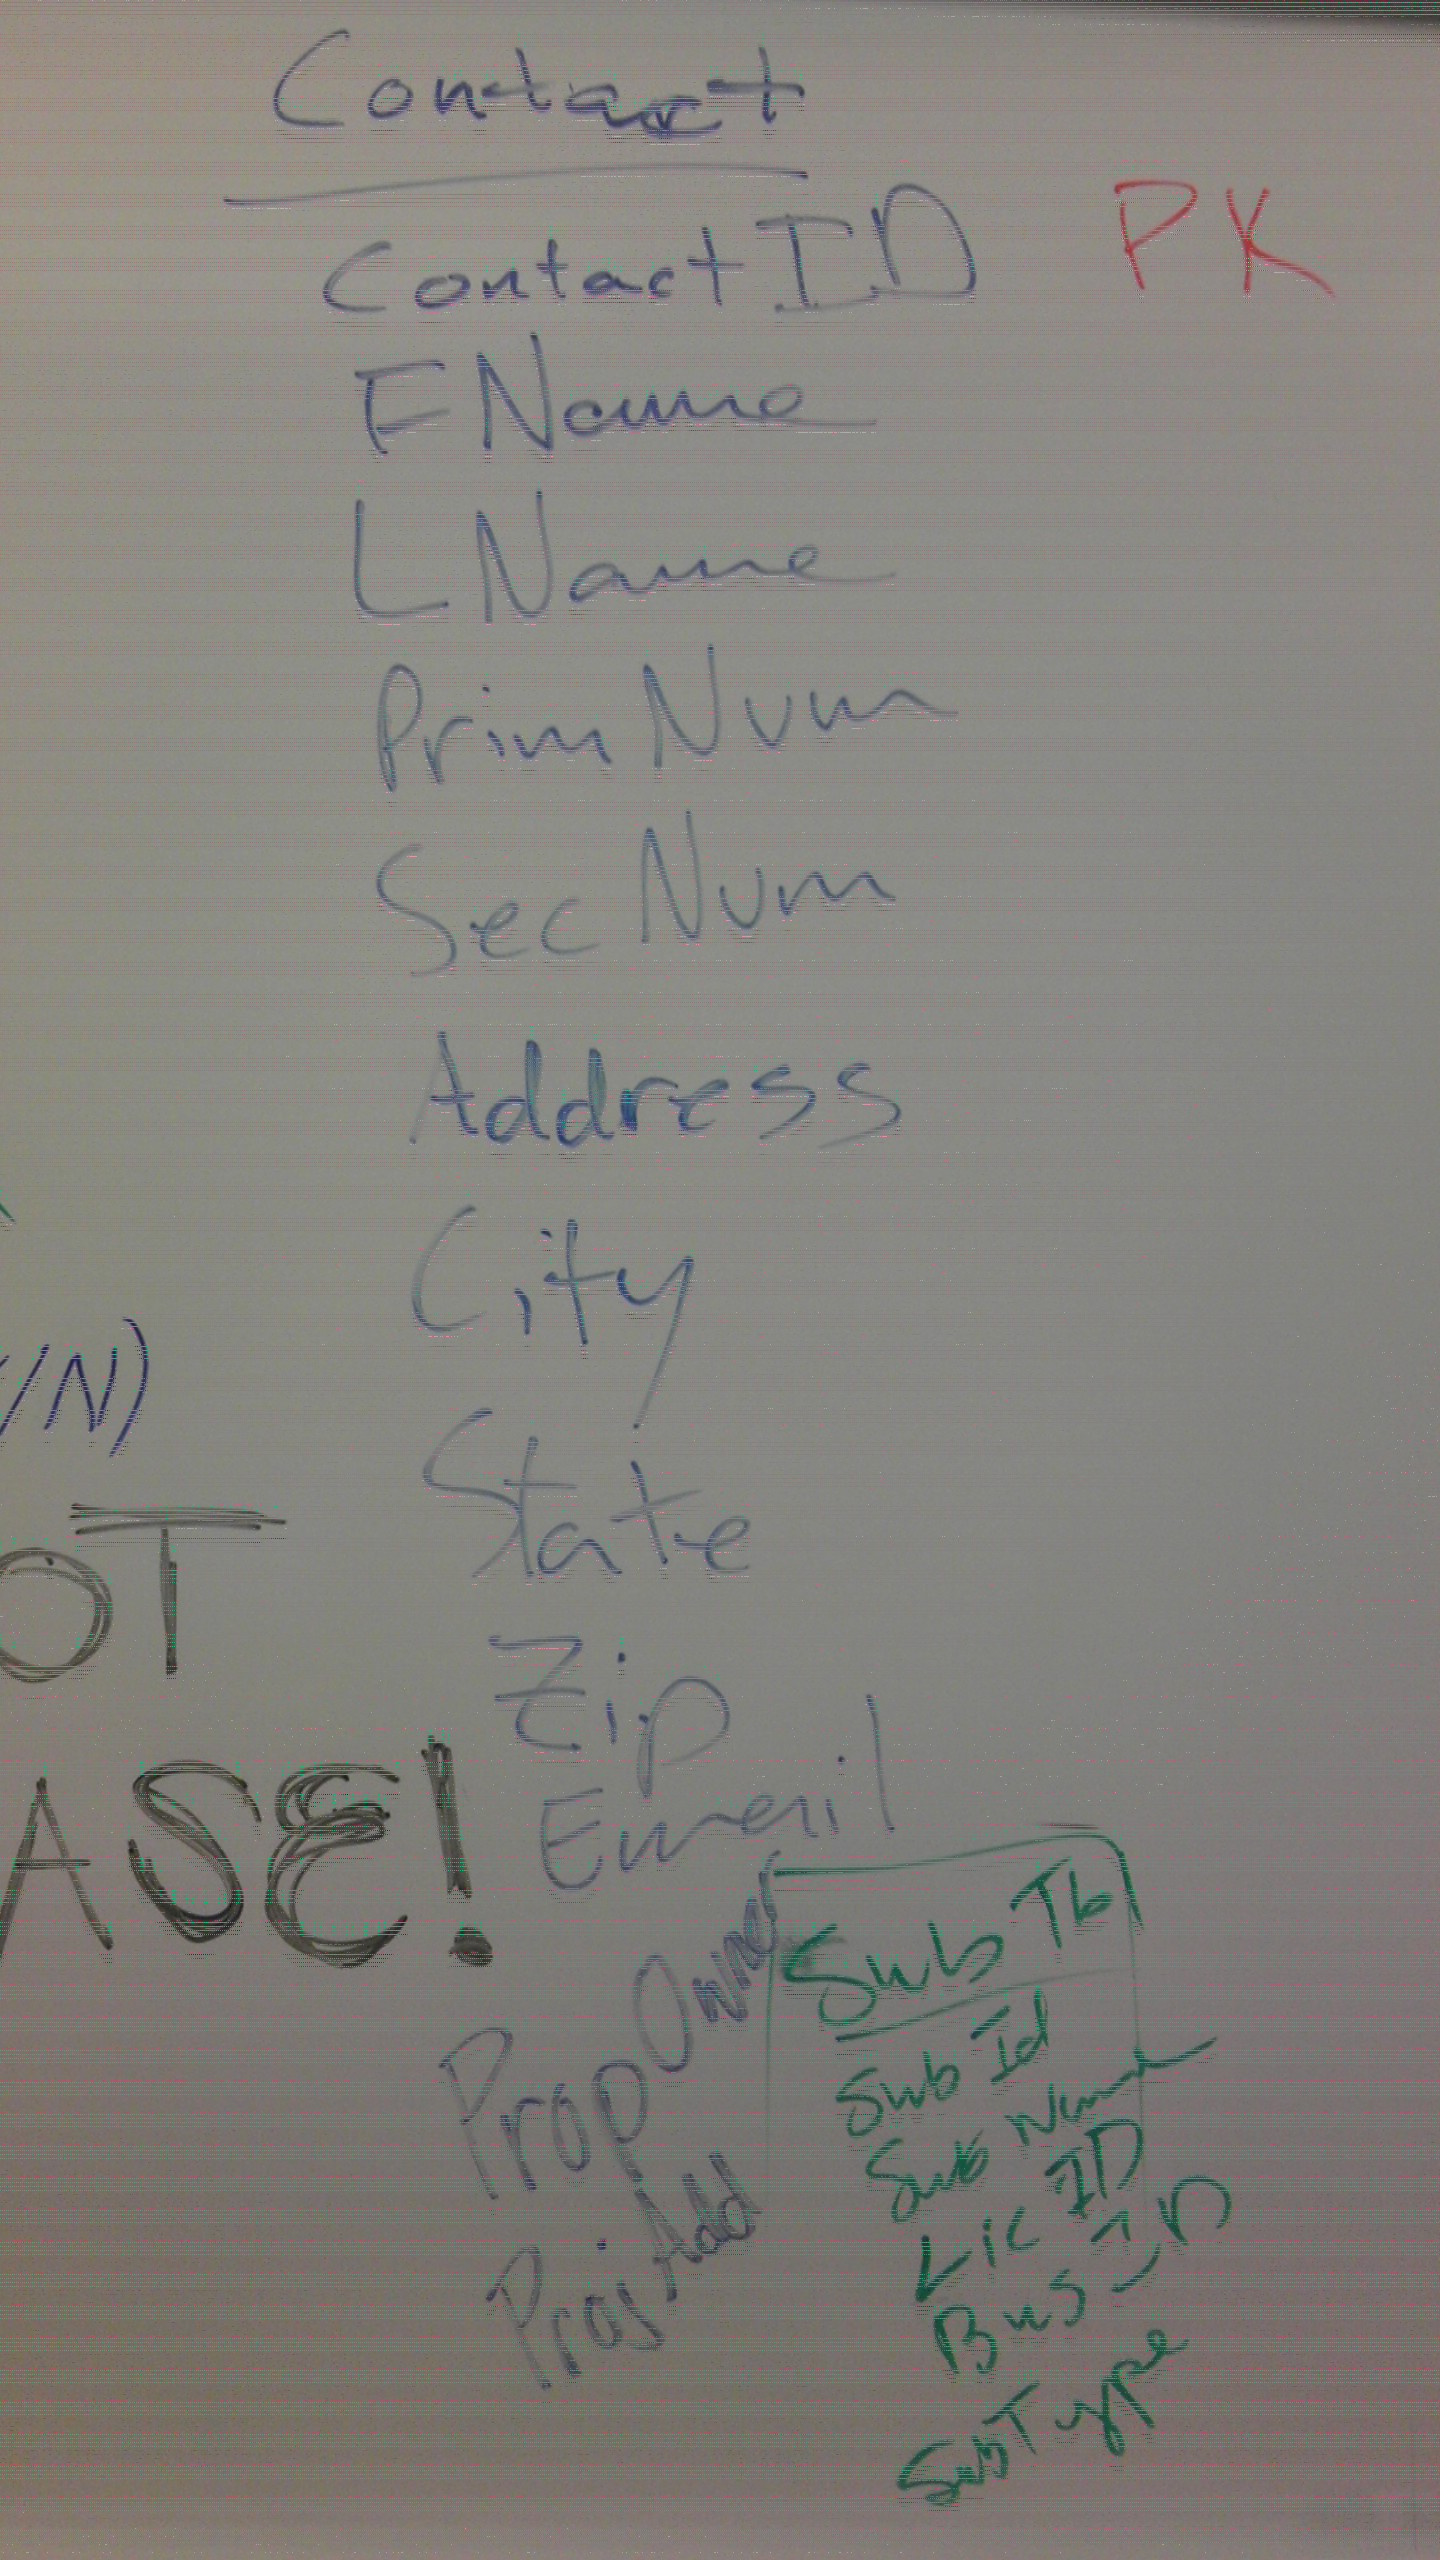 Contact
ContactID PK
FName
LName
PrimNum
SecNum
Address
City
State
Zip
Email
PropOwner
ProjAdd
/N)
OT
ASE!
SubTb
SubId
SubName
LicID
BusID
SubType